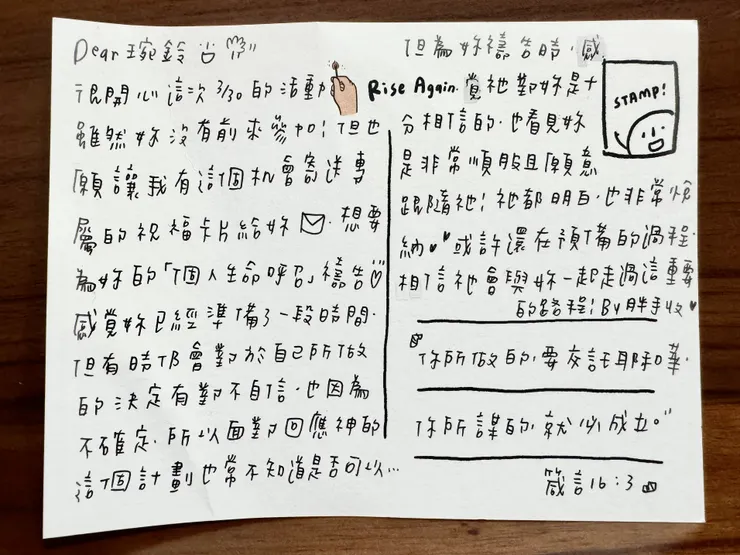 Dear 琬鈴
很開心這次 3/30 的活動 Rise Again.
雖然妳沒有前來參加！但也
願讓我有這個機會寄送專
屬的祝福卡片給妳．想要
為妳的「個人生命呼召」禱告
感覺妳已經準備了一段時間．
但有時候會對於自己所做
的決定有點不自信．也因為
不確定．所以面對回應神的
這個計劃也常不知道是否可以…
但為妳禱告時．感
覺祂對妳是十
分相信的．也看見妳
是非常順服且願意
跟隨祂！祂都明白．也非常悅
納♥♥或許還在預備的過程．
相信祂會與妳一起走過這重要
的路程！By 胖手收♥
STAMP!
你所做的，要交託耶和華．
你所謀的，就必成立。"
箴言16：3